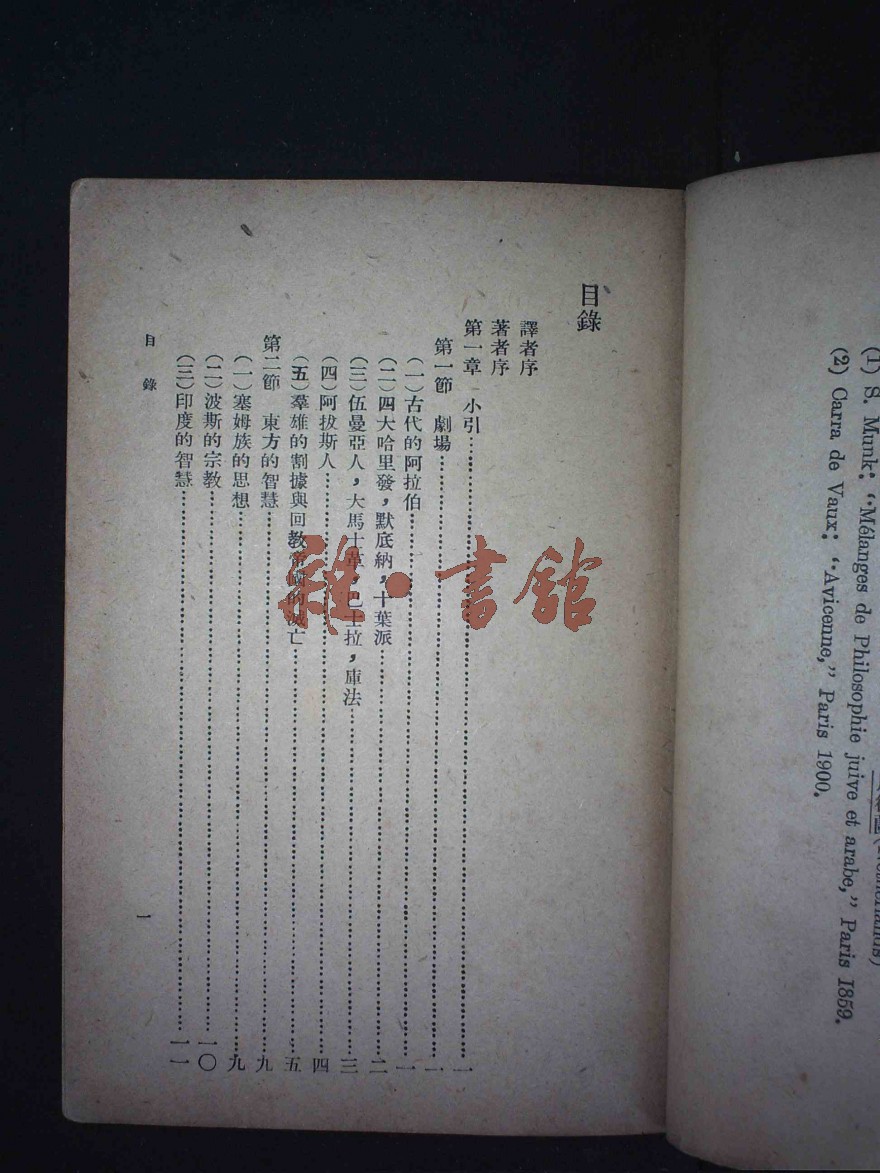 目錄
譯者序
著者序
第一章 小引……一
第一節 劇場……一
(一)古代的阿拉伯……一
(二)四大哈里發,默底納,十葉派……二
(三)伍曼亞人,大馬士革,巴士拉,庫法……三
(四)阿拔斯人……四
(五)羣雄的割據與回教帝國的滅亡……五
第二節 東方的智慧……九
(一)塞姆族的思想……九
(二)波斯的宗教……一〇
(三)印度的智慧……一一
目錄
一
雜·書館
(1) S. Munk: “Mélanges de Philosophie juive et arabe,” Paris 1859.
(2) Carra de Vaux: “Avicenne,” Paris 1900.